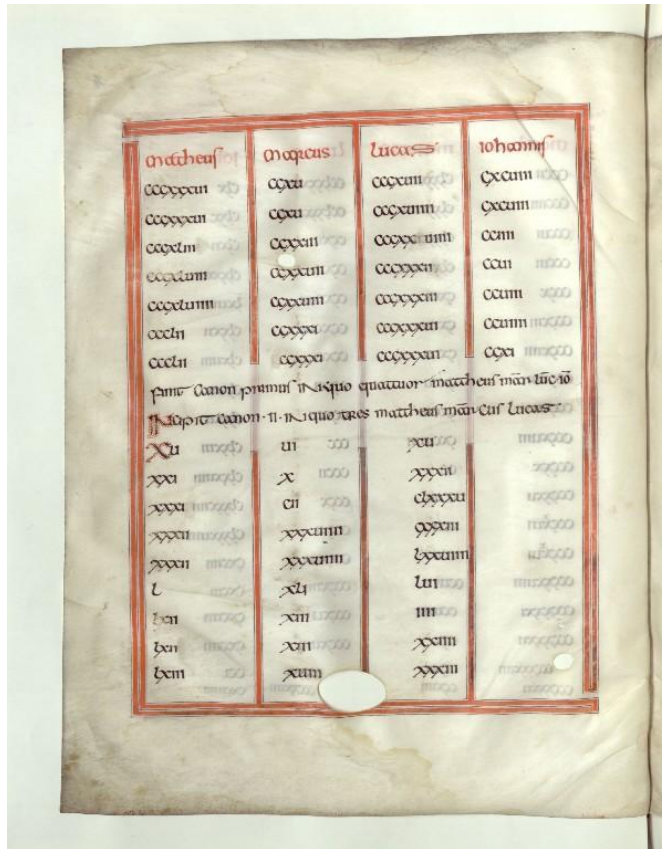 mattheus marcus lucas iohannis
cccxxxui ccxu cccxuii cxcuiii
cccxxxui ccxu cccxuiiii cxcuiiii
cccxliii ccxxiii cccxxuiiii cciiii
cccxluiii ccxxuii cccxxxii ccui
cccxluiiii ccxxuiii cccxxxiii ccuiii
ccclii ccxxxi cccxxxui ccuiiii
ccclii ccxxxi cccxxxui ccxi
finit canon primus in quo quattuor mattheus mar̄ luc̄ io
incipit canon · ii · in quo tres mattheus marcus lucas
xu ui xu
xxi x xxxii
xxxi cii clxxxu
xxxii xxxuiiii cxxxiii
xxxii xxxuiiii lxxuiiii
l xli lui
lxii xiii iiii
lxii xiii xxiiii
lxiii xuiii xxxiii